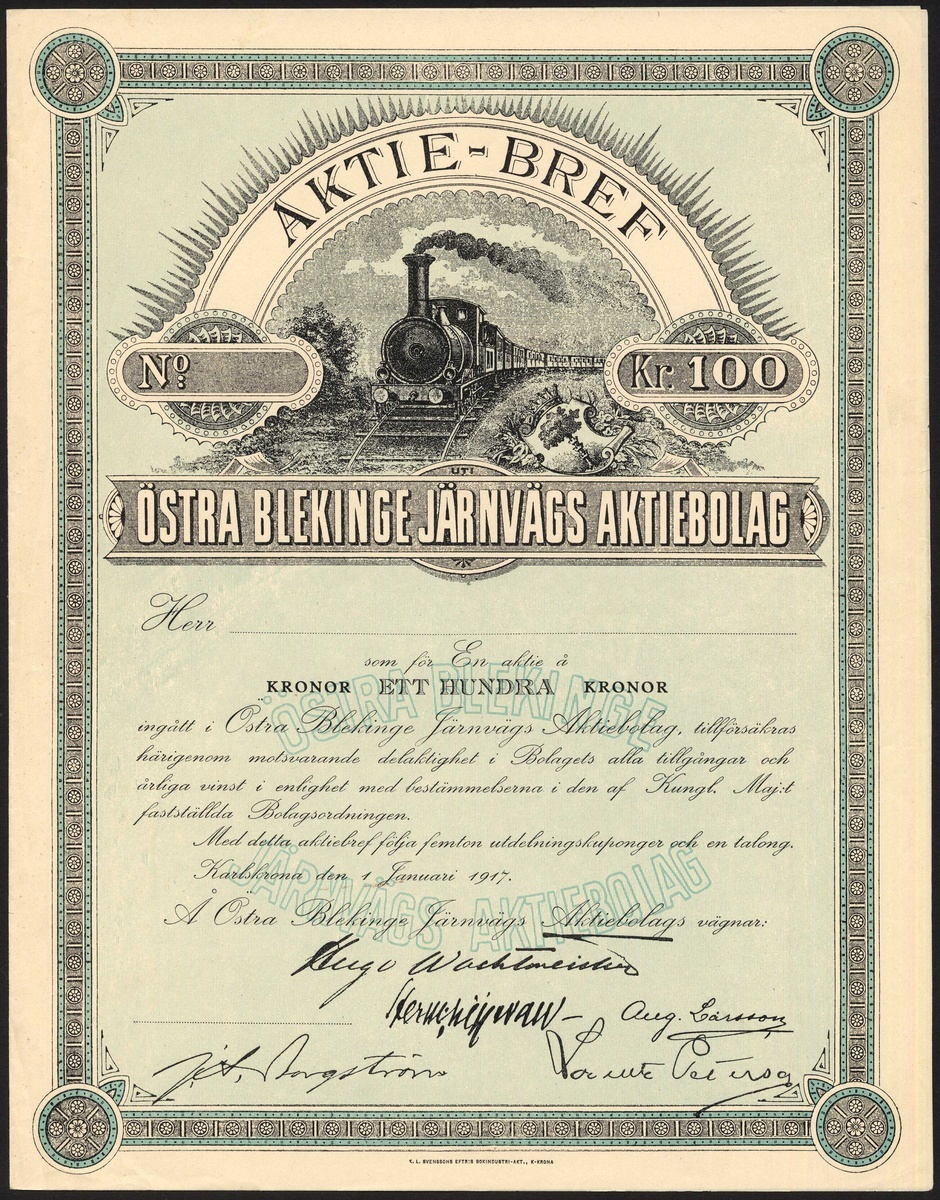 AKTIE-BREF
No:
Kr. 100
UTI
ÖSTRA BLEKINGE JÄRNVÄGS AKTIEBOLAG
Herr
som för En aktie å
KRONOR ETT HUNDRA KRONOR
ÖSTRA BLEKINGE
ingått i Östra Blekinge Järnvägs Aktiebolag, tillförsäkras
härigenom motsvarande delaktighet i Bolagets alla tillgångar och
årliga vinst i enlighet med bestämmelserna i den af Kungl. Maj:t
fastställda Bolagsordningen.
Med detta aktiebref följa femton utdelningskuponger och en talong.
JÄRNVÄGS AKTIEBOLAG
Karlskrona den 1 Januari 1917.
Å Östra Blekinge Järnvägs Aktiebolags vägnar:
Hugo Wachtmeister
Aug. Larsson
Borgström
K. L. SVENSSONS EFTR:S BOKINDUSTRI-AKT., K-KRONA